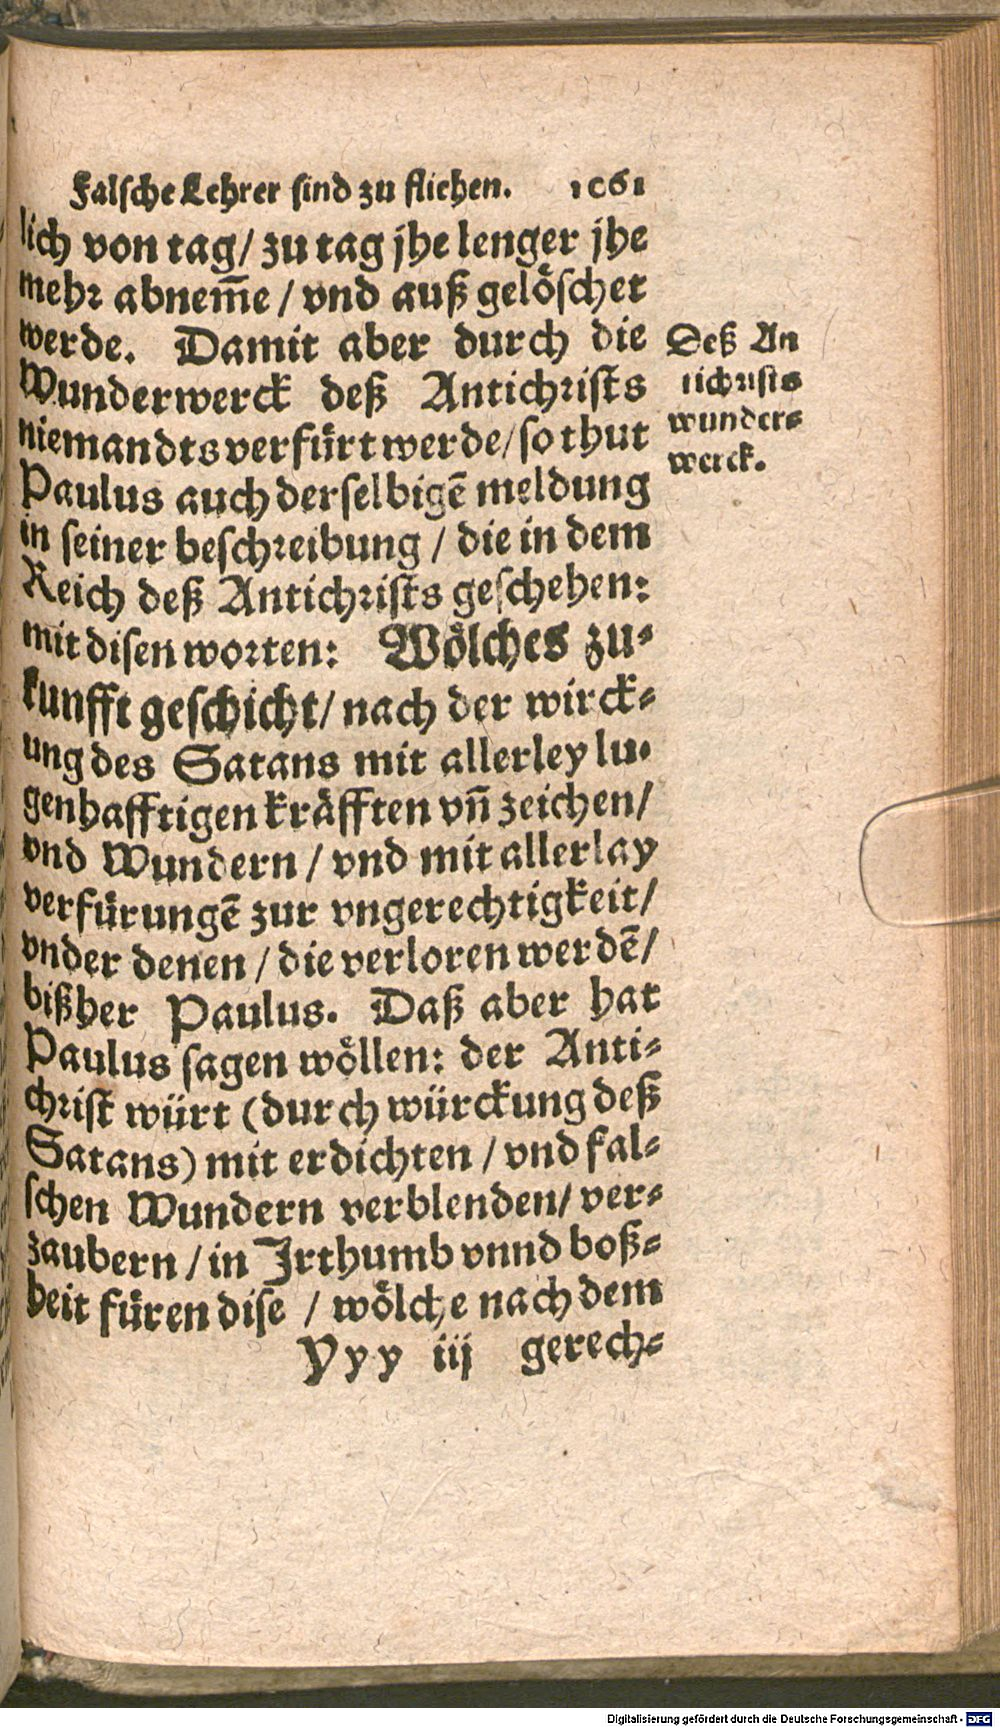 Falsche Lehrer sind zu fliehen. 1061
lich von tag/ zu tag jhe lenger jhe
mehr abnem̄e / vnd auß gelöschet
werde. Damit aber durch die
Wunderwerck deß Antichrists
niemandts verfürt werde/ so thut
Paulus auch derselbigē meldung
in seiner beschreibung / die in dem
Reich deß Antichrists geschehen:
mit disen worten: Wölches zu-
kunfft geschicht/ nach der wirck-
ung des Satans mit allerley lu-
genhafftigen kräfften vñ zeichen/
vnd Wundern / vnd mit allerlay
verfürungē zur vngerechtigkeit/
vnder denen / die verloren werdē/
bißher Paulus. Daß aber hat
Paulus sagen wöllen: der Anti-
christ würt (durch würckung deß
Satans) mit erdichten / vnd fal-
schen Wundern verblenden/ ver-
zaubern / in Irthumb vnnd boß-
heit füren dise / wölche nach dem
Yyy iij gerech-
Deß An
tichrists
wunder-
werck.
Digitalisierung gefördert durch die Deutsche Forschungsgemeinschaft - DFG